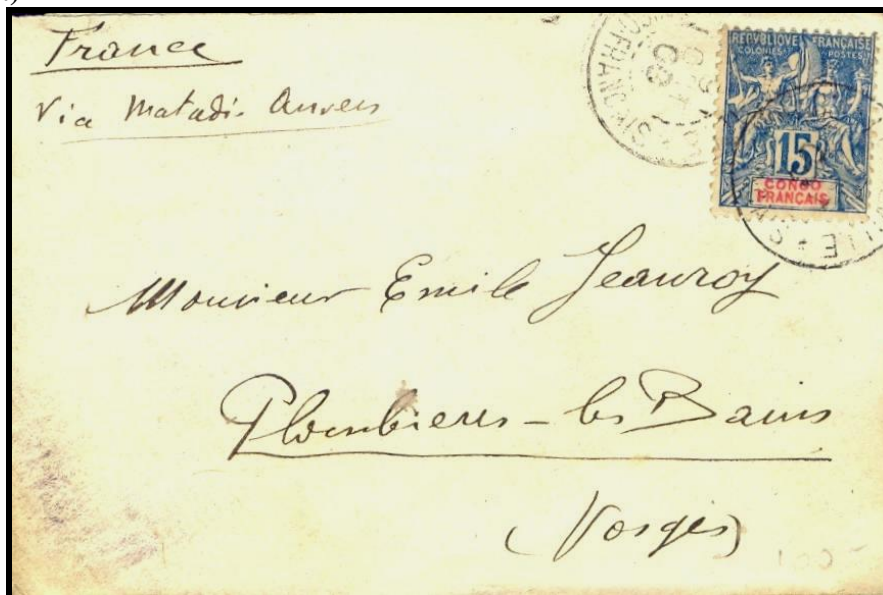 France
Via Matadi- Anvers
REPUBLIQUE FRANÇAISE
COLONIES POSTES
15
CONGO
FRANÇAIS
Monsieur Emile Jeauroy
Plombieres-les Bains
(Vosges)